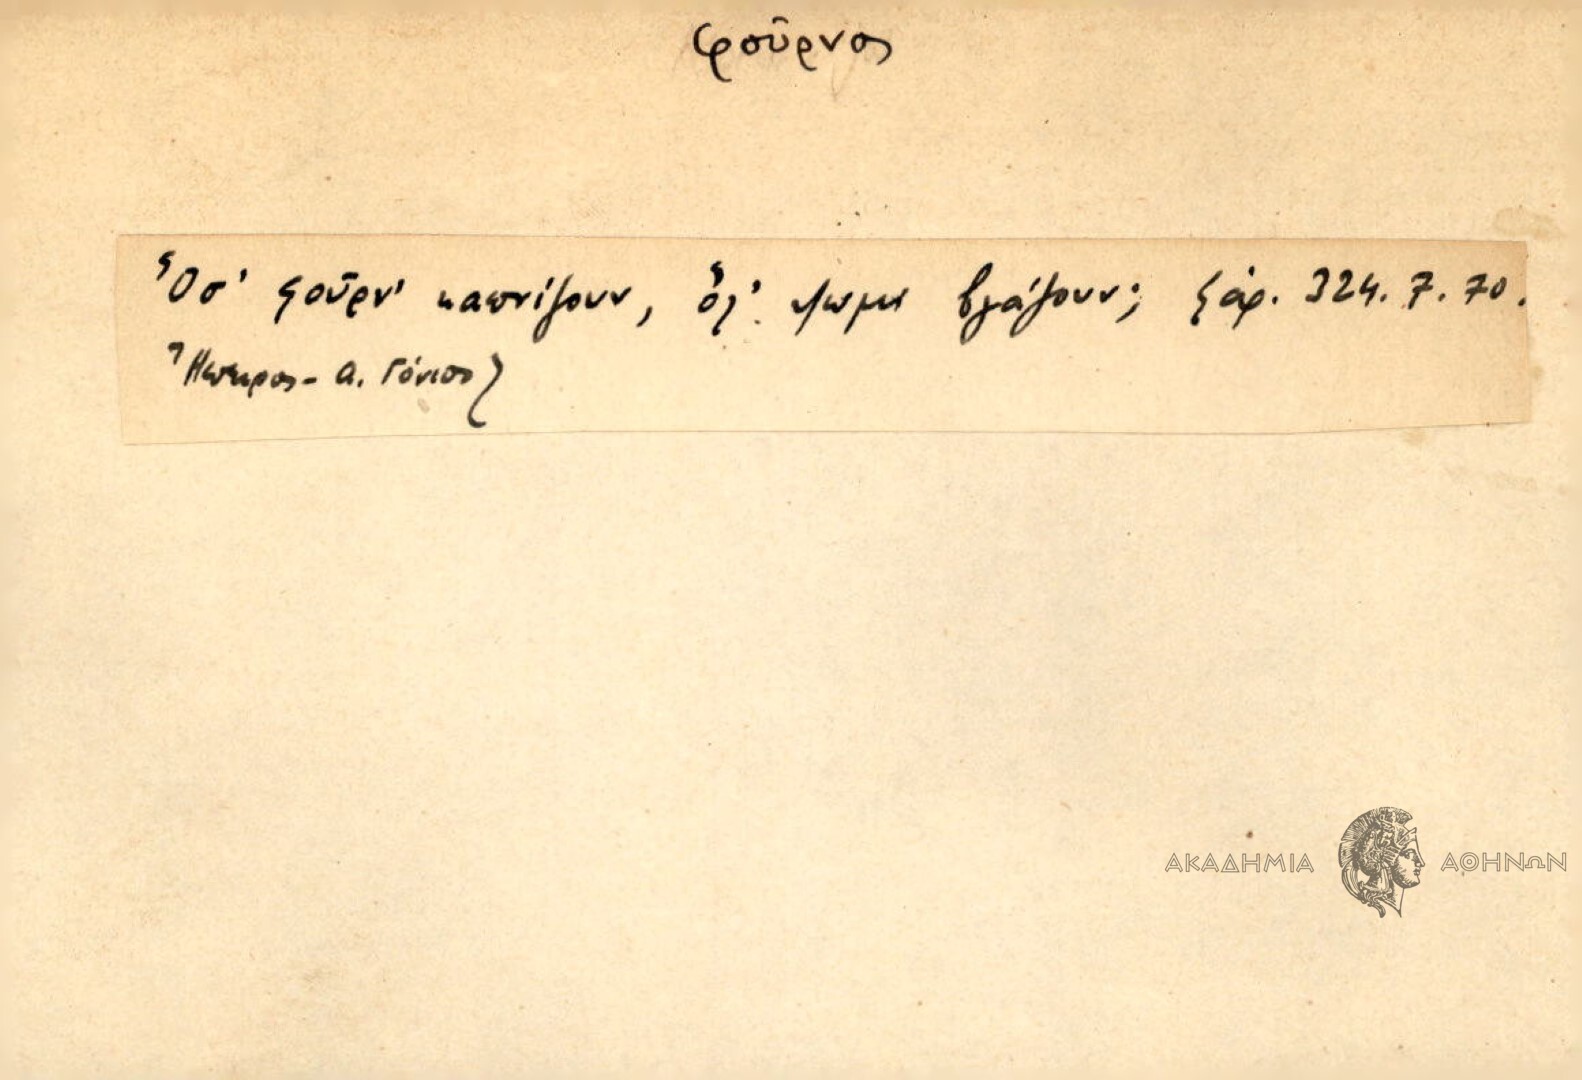 φοῦρνος
Ὅσ' φοῦρν' καπνίζουν, ὅλ' ψωμὶ βγάζουν; Σάρ. 324. 7. 70.
Ἤπειρος - Α. Γόνιος
ΑΚΑΔΗΜΙΑ ΑΘΗΝΩΝ